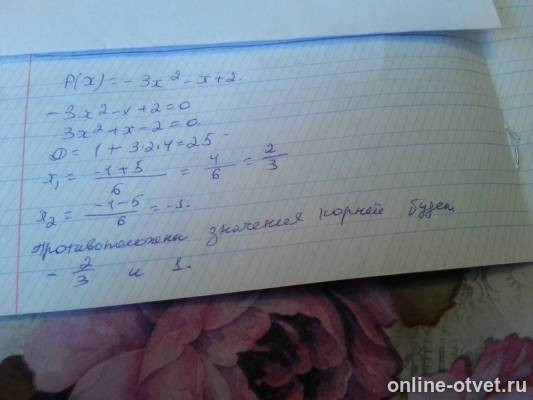 P(x) = - 3x² - x + 2.
- 3x² - x + 2 = 0
3x² + x - 2 = 0.
D = 1 + 3·2·4 = 25
x₁ = (-1+5)/6 = 4/6 = 2/3
x₂ = (-1-5)/6 = -1.
противоположны значения корней будет
- 2/3 и 1.
online-otvet.ru